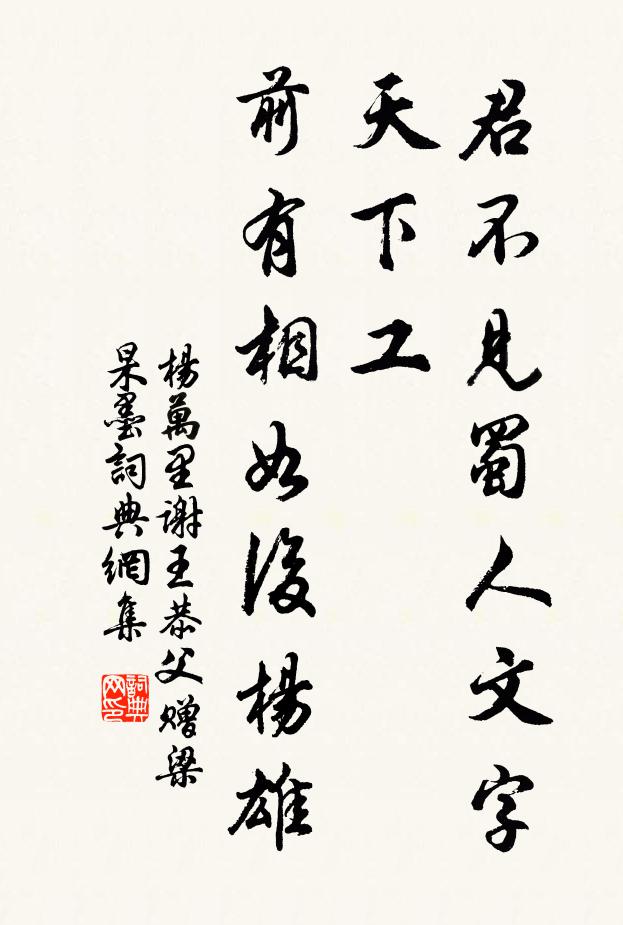 君不見蜀人文字
天下工
前有相如後楊雄
楊萬里謝王恭父贈梁
杲墨詞典網集
詞典网印